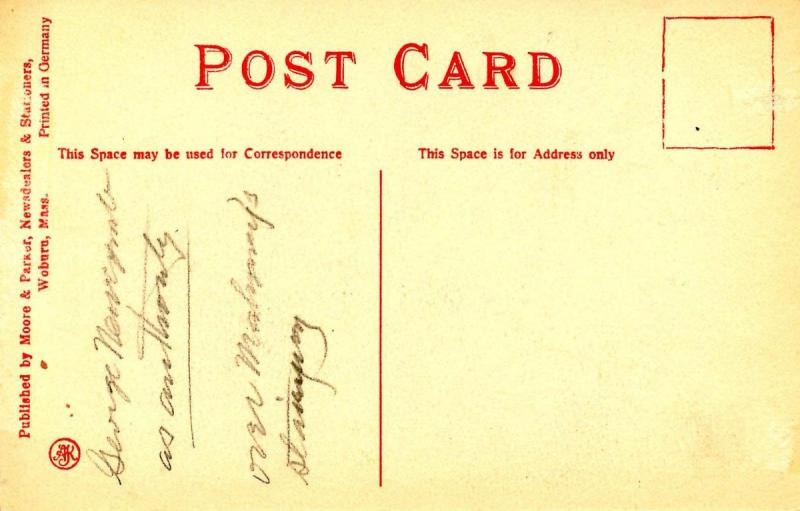 POST CARD
This Space may be used for Correspondence
This Space is for Address only
Published by Moore & Parker, Newsdealers & Stationers,
Woburn, Mass.
Printed in Germany
George
as
over